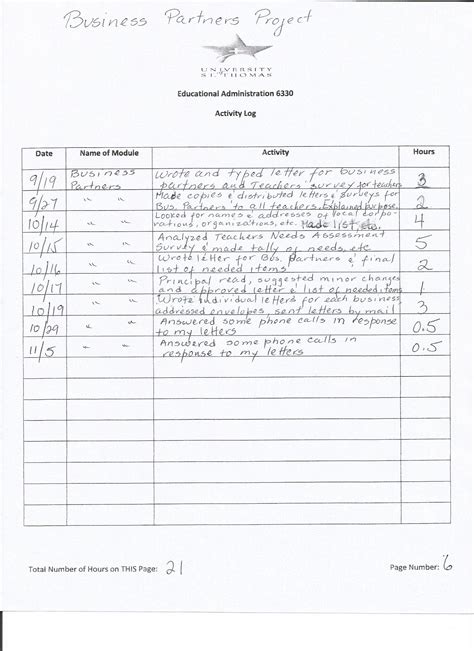 Business Partners Project
UNIVERSITY
of
ST. THOMAS
Educational Administration 6330
Activity Log
Date Name of Module Activity Hours
9/19 Business Partners Wrote and typed letter for business
partners and Teachers' survey for teachers 3
9/27 " " Made copies & distributed letters & surveys for
Bus. Partners to all teachers. Explained purpose. 2
10/14 " " Looked for names & addresses of local corpo-
rations, organizations, etc. Made list, etc. 4
10/15 " " Analyzed Teachers Needs Assessment
Survey & made tally of needs, etc 5
10/16 " " Wrote letter for Bus. Partners & final
list of needed items 2
10/17 " " Principal read, suggested minor changes
and approved letter & list of needed items 1
10/19 " " Wrote individual letters for each business
addressed envelopes, sent letters by mail 3
10/29 " " Answered some phone calls in response
to my letters 0.5
11/5 " " Answered some phone calls in
response to my letters 0.5
Total Number of Hours on THIS Page: 21
Page Number: 6